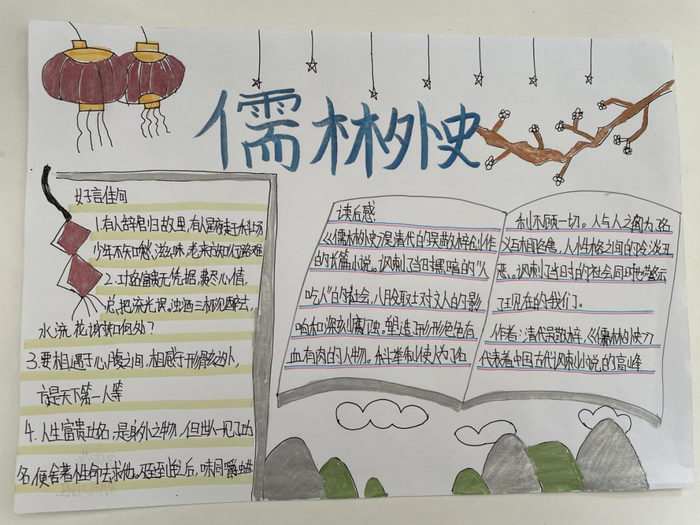 儒林外史
好言佳句
1.有人辞官归故里,有人星夜赶考场
少年不知愁滋味,老来方知行路难
2.功名富贵无凭据,费尽心情,
总把流光误,浊酒三杯沉醉去,
水流花谢知何处?
3.要相遇于心腹之间,相感于形骸之外,
方是天下第一人等
4.人生富贵功名,是身外之物,但世人一见了功
名,便舍著性命去求他,及至到手之后,味同嚼蜡
读后感:
《儒林外史》是清代的吴敬梓创作
的长篇小说。讽刺了当时黑暗的"人
吃人"的社会,八月取士对文人的影
响和深刻腐蚀。塑造了形形色色有
血有肉的人物。科举制使人为了名
利不顾一切。人与人之间为名
义互相追逐,人性格之间的冷淡丑
恶。讽刺了当时的社会同时也警示
了现在的我们。
作者:清代吴敬梓,《儒林外史》
代表着中国古代讽刺小说的高峰